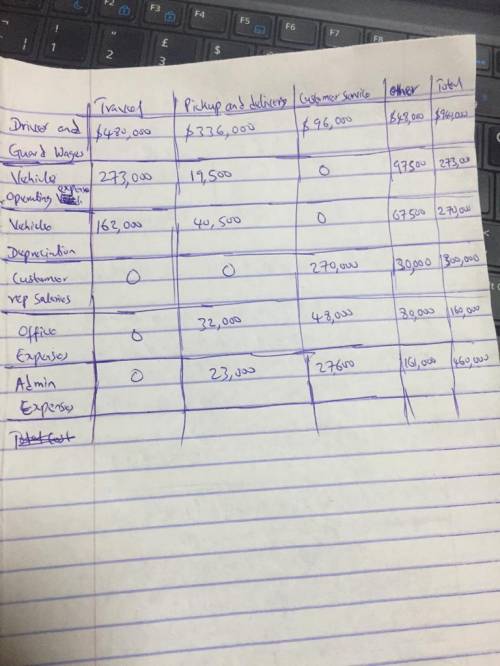 Travel Pickup and delivery Customer service other Total
Driver and $480,000 $336,000 $96,000 $48,000 $960,000
Guard Wages
Vehicle 273,000 19,500 0 97500 273,000
operating expense
Vehicle 162,000 40,500 0 67500 270,000
Depreciation
Customer 0 0 270,000 30,000 300,000
rep Salaries
Office 0 32,000 48,000 80,000 160,000
Expenses
Admin 0 23,000 27600 161,000 460,000
Expenses
Total Cost